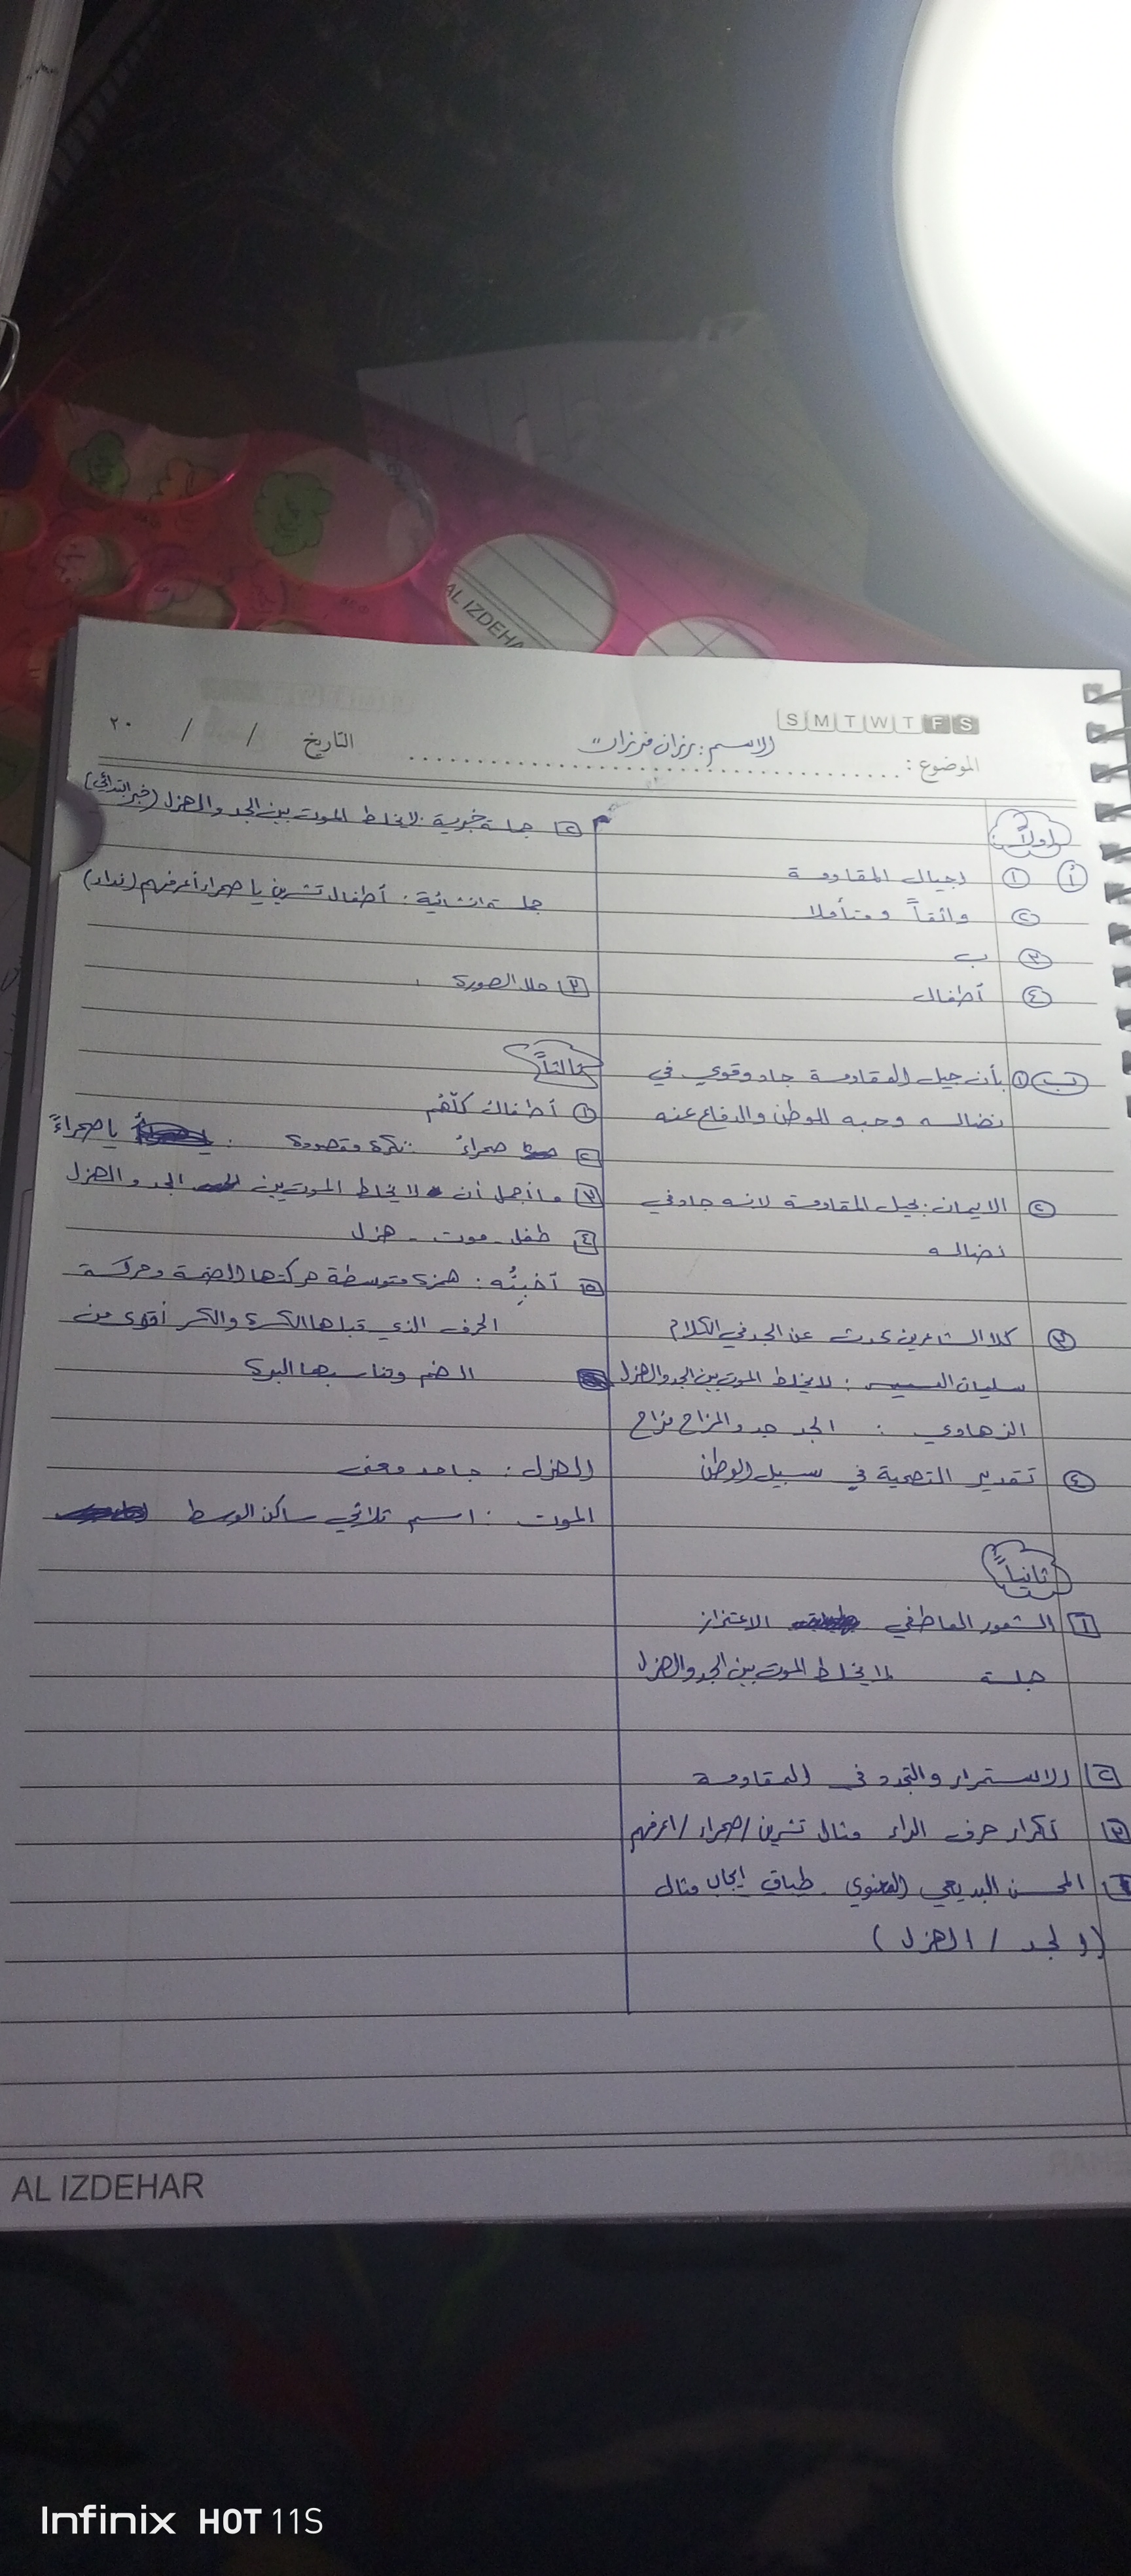 AL IZDEHAR
S M T W T F S
الاسم: رزان فرزات
الموضوع: التاريخ / / ٢٠
أولاً:
أ ١ أجيال المقاومة
٢ واثقاً ومتأملا
٣ ب
٤ أطفال
ب ١ بأن جيل المقاومة جاد وقوي في
نضاله وحبه للوطن والدفاع عنه
٢ الايمان بجيل المقاومة لانه جاد في
نضاله
٣ كلا الشاعرين تحدث عن الجد في الكلام
سليمان العيسى: لا يخلط الموت بين الجد والهزل
الزهاوي: الجد جد والمزاح مزاح
٤ تقدير التضحية في سبيل الوطن
ثانياً
١ الشعور العاطفي الاعتزاز
جملة لا يخلط الموت بين الجد والهزل
٢ الاستمرار والتجدد في المقاومة
٣ تكرار حرف الراء مثال تشرين / صحراء / اعرفهم
٤ المحسن البديعي المعنوي طباق إيجاب مثال
(الجد / الهزل)
٥ جملة خبرية: لا يخلط الموت بين الجد والهزل (خبر ابتدائي)
جملة انشائية: أطفال تشرين يا صحراء أعرفهم (نداء)
حلا الصورة
ثالثاً
١ أطفالك كلّهُم
٢ صحراءُ نكرة مقصودة: يا صحراءً
٣ ما أجمل أن لا يخلط الموت بين الجد والهزل
٤ طفل - موت - هزل
٥ أخبِئُه: همزة متوسطة حركتها الضمة وحركة
الحرف الذي قبلها الكسرة والكسر أقوى من
الضم وتناسبها النبرة
الهزل: جامد معنى
الموت: اسم ثلاثي ساكن الوسط
AL IZDEHAR
Infinix HOT 11S